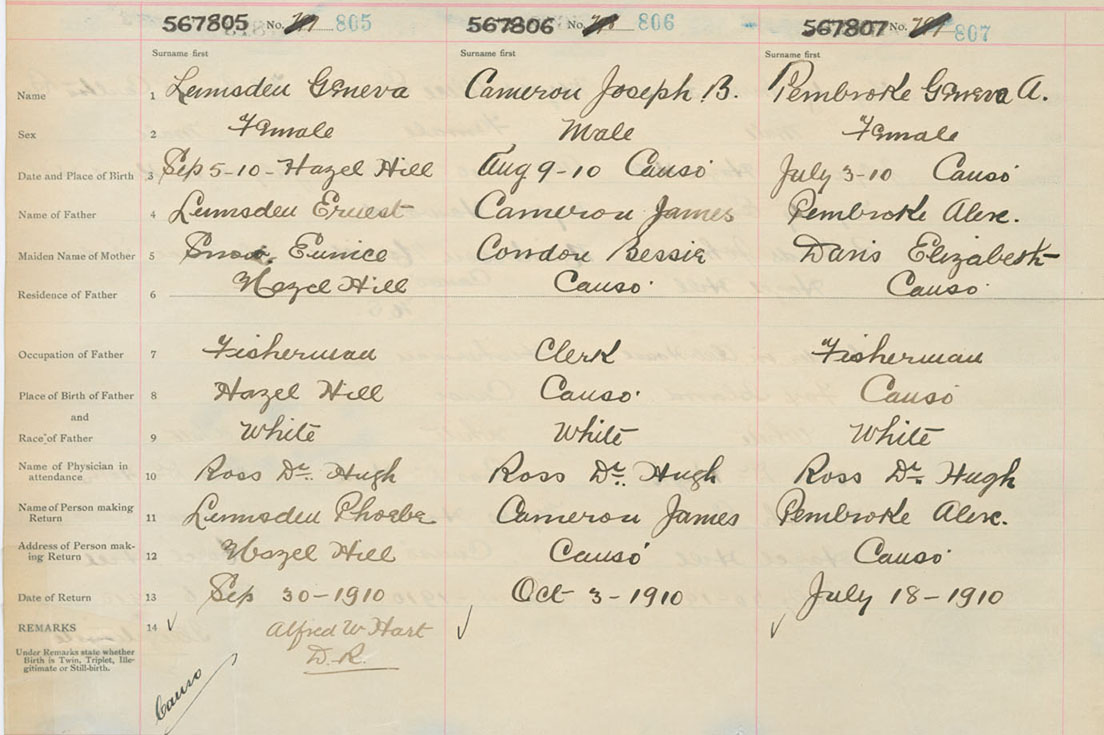 567805 No. 805 567806 No. 806 567807 No. 807
Surname first Surname first Surname first
Name 1 Lumsden Geneva Cameron Joseph B. Pembroke Geneva A.
Sex 2 Female Male Female
Date and Place of Birth 3 Sep 5-10- Hazel Hill Aug 9-10 Canso July 3-10 Canso
Name of Father 4 Lumsden Ernest Cameron James Pembroke Alex.
Maiden Name of Mother 5 Snow, Eunice Condon Bessie Davis Elizabeth
Residence of Father 6 Hazel Hill Canso Canso
Occupation of Father 7 Fisherman Clerk Fisherman
Place of Birth of Father 8 Hazel Hill Canso Canso
and
Race of Father 9 White White White
Name of Physician in
attendance 10 Ross Dr. Hugh Ross Dr. Hugh Ross Dr. Hugh
Name of Person making
Return 11 Lumsden Phoebe Cameron James Pembroke Alex.
Address of Person mak-
ing Return 12 Hazel Hill Canso Canso
Date of Return 13 Sep 30-1910 Oct 3-1910 July 18-1910
REMARKS 14 Alfred W Hart
D.R.
Under Remarks state whether
Birth is Twin, Triplet, Ille-
gitimate or Still-birth.
Canso